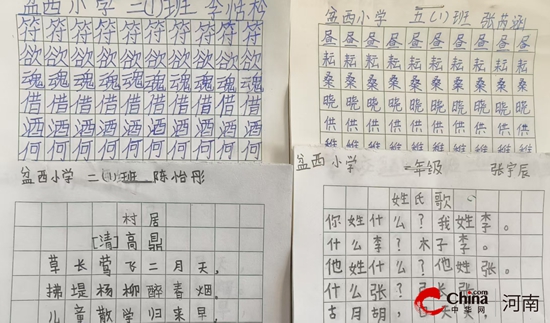 盆西小学 三(1)班 李恬松
符符符符符符符符符
欲欲欲欲欲欲欲欲欲
魂魂魂魂魂魂魂魂魂
借借借借借借借借借
酒酒酒酒酒酒酒酒酒
何何何何何何何何何
盆西小学 五(1)班 张芮涵
昼昼昼昼昼昼昼昼昼
耘耘耘耘耘耘耘耘耘
桑桑桑桑桑桑桑桑桑
晓晓晓晓晓晓晓晓晓
供供供供供供供供供
维维维维维维维维维
盆西小学 二(1)班 陈怡彤
村居
[清]高鼎
草长莺飞二月天，
拂堤杨柳醉春烟。
儿童散学归来早，
盆西小学 一年级 张宇辰
姓氏歌
你姓什么？我姓李。
什么李？木子李。
他姓什么？他姓张。
什么张？弓长张。
古月胡，
China.com 中华网 河南